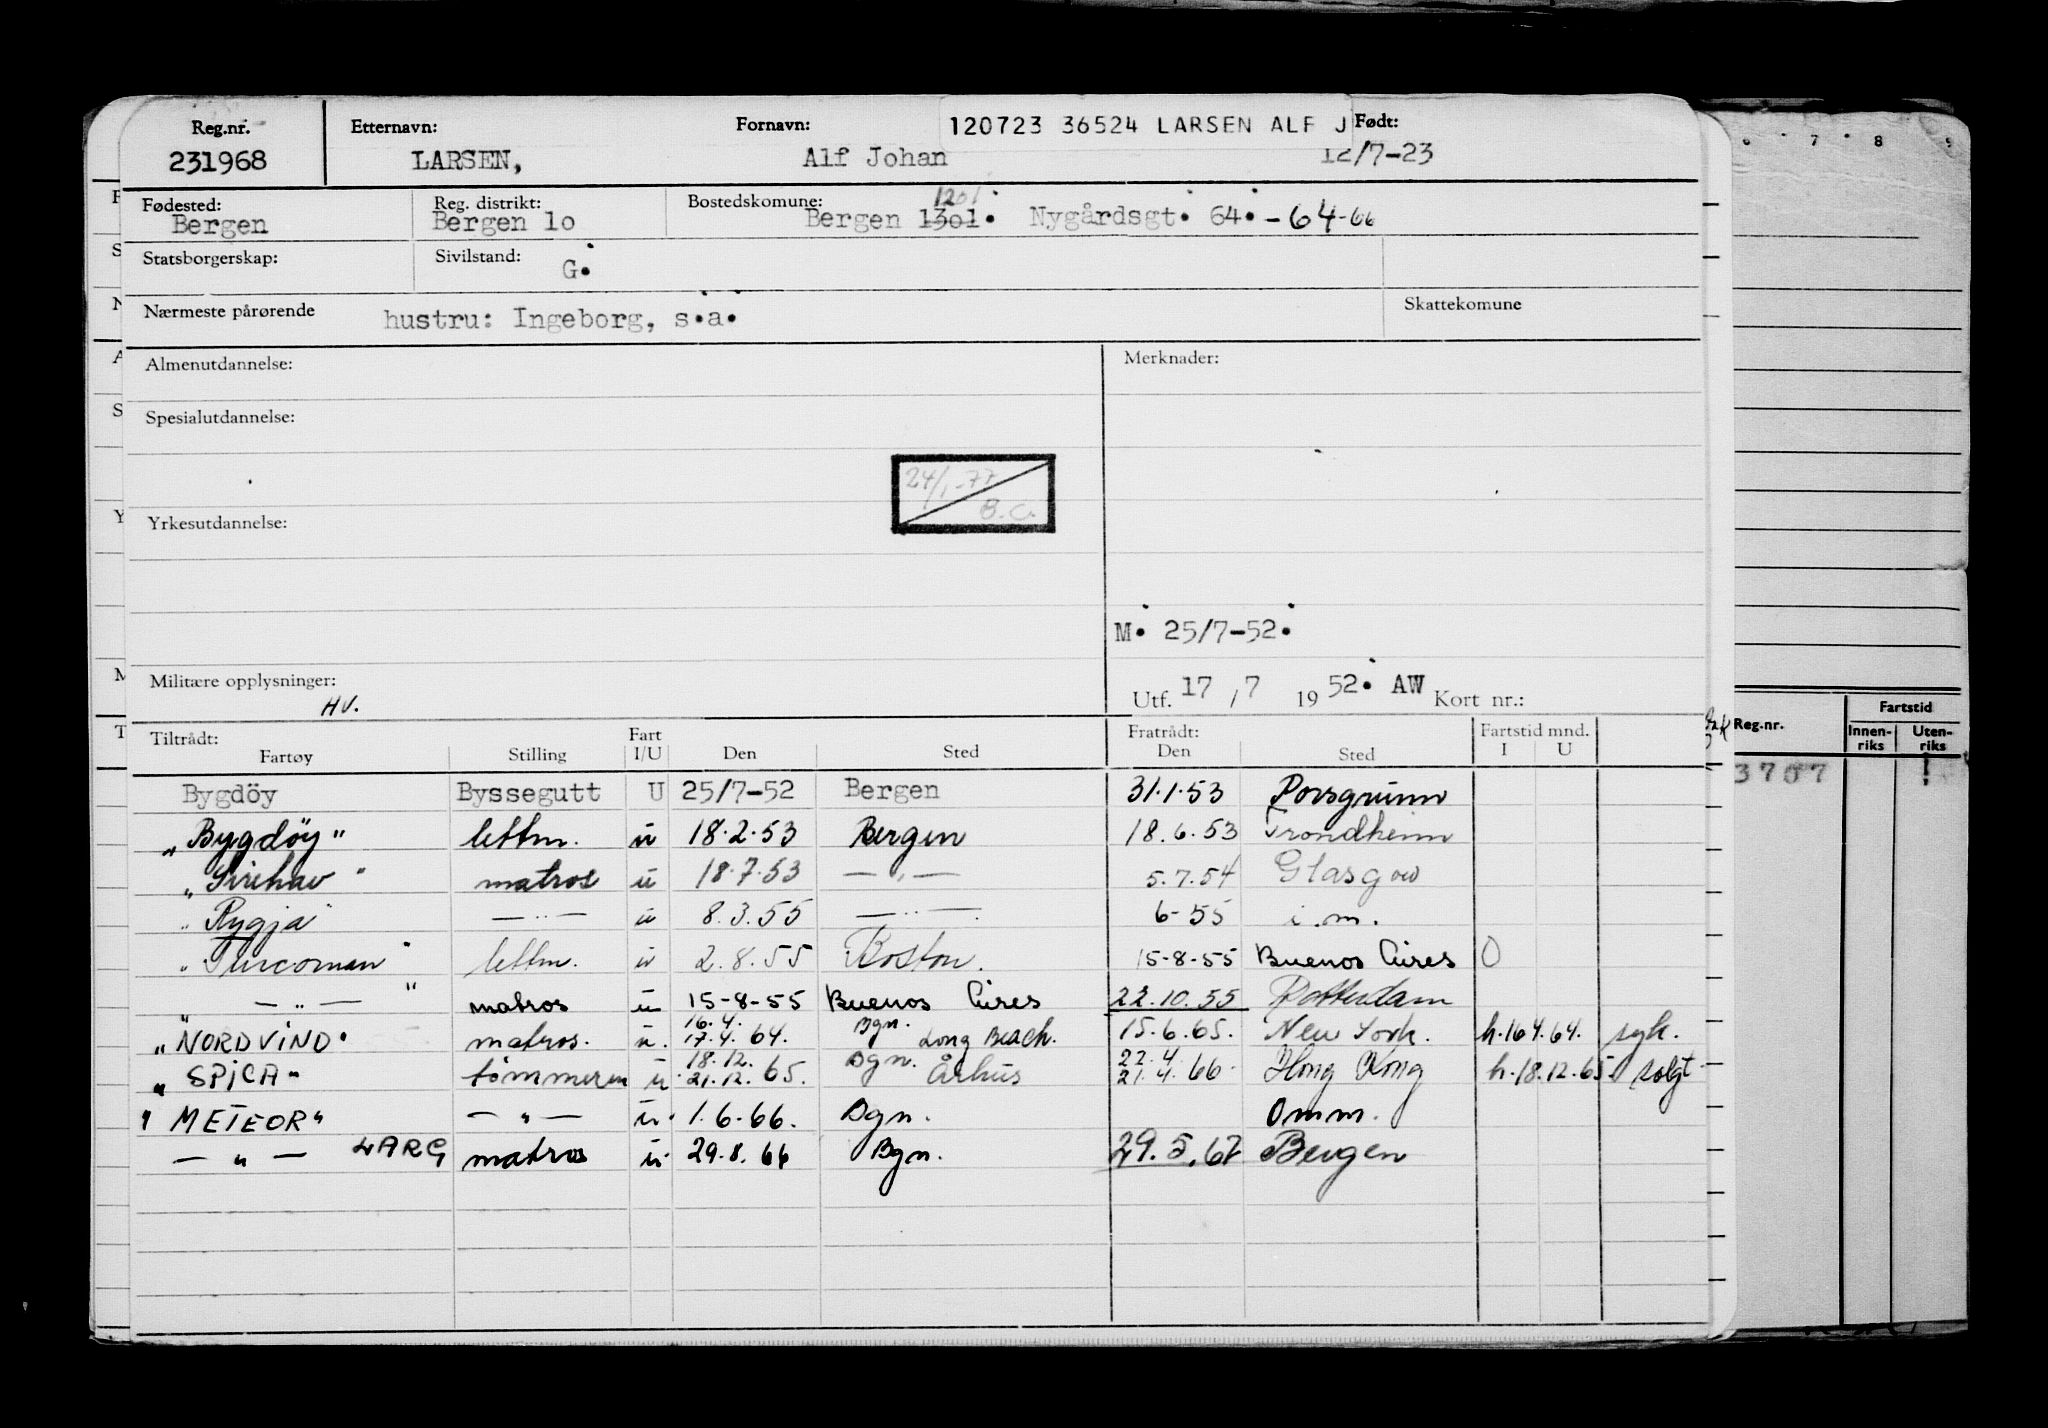 Reg.nr. Etternavn: Fornavn: 120723 36524 LARSEN ALF J Født:
231968 LARSEN, Alf Johan 12/7-23
Fødested: Reg. distrikt: Bostedskomune: 1201
Bergen Bergen 1o Bergen 13o1. Nygårdsgt. 64. -64-66
Statsborgerskap: Sivilstand: G.
Nærmeste pårørende hustru: Ingeborg, s.a. Skattekomune
Almenutdannelse: Merknader:
Spesialutdannelse:
24/1-77
B.C.
Yrkesutdannelse:
M. 25/7-52.
Militære opplysninger: HV.
Utf. 17 / 7 19 52. AW Kort nr.:
Tiltrådt: Fart Fratrådt: Fartstid mnd.
Fartøy Stilling I/U Den Sted Den Sted I U
Bygdöy Byssegutt U 25/7-52 Bergen 31.1.53 Porsgrunn
"Bygdöy" lettm. u 18.2.53 Bergen 18.6.53 Trondheim
"Sirehav" matros u 18.7.53 — " — 5.7.54 Glasgow
"Rygja" — " — u 8.3.55 — " — 6-55 i.m.
"Turcoman" lettm. u 2.8.55 Boston. 15-8-55 Buenos Aires 0
" — " — " matros u 15-8-55 Buenos Aires 22.10.55 Rotterdam
"NORDVIND" matros. u. 16.4. 17.4.64. Bgn. Long Beach. 15.6.65. New York. h.16.4.64. syk.
"SPICA" tømmerm u. 18.12. 21.12.65. Bgn. Århus 22.4. 21.4.66. Hong Kong h.18.12.65. solgt
"METEOR" — " — u. 1.6.66. Bgn. Omm.
— " — LARG matros u. 29.8.66 Bgn. 29.5.67 Bergen
6 7 8 9
Reg.nr. Fartstid
Innenriks Utenriks
3707